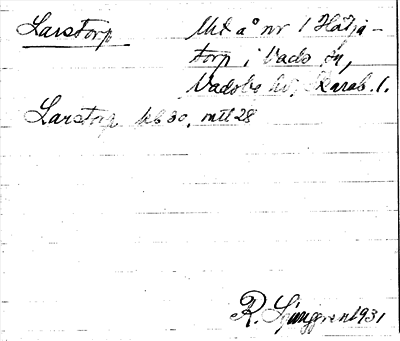 Larstorp Utl å nr 1 Hätja-
torp i Vads sn,
Vadsbo hd, Skarab. l.
Larstorp kb 30, mtl 28
R. Ljunggren 1931